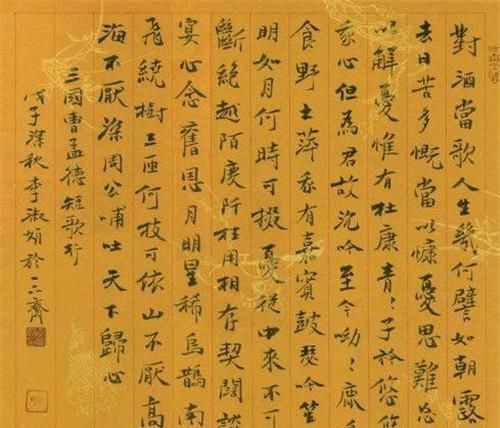 對酒當歌人生幾何譬如朝露
去日苦多慨當以慷憂思難忘
以解憂惟有杜康青々子衿悠悠
我心但為君故沉吟至今呦々鹿
食野之苹我有嘉賓鼓瑟吟笙
明如月何時可掇憂從中來不可
斷絕越陌度阡枉用相存契闊談
宴心念舊恩月明星稀烏鵲南
飛繞樹三匝何枝可依山不厭高
海不厭深周公哺吐天下歸心
三國曹孟德短歌行
戊子深秋李淑娟於齋